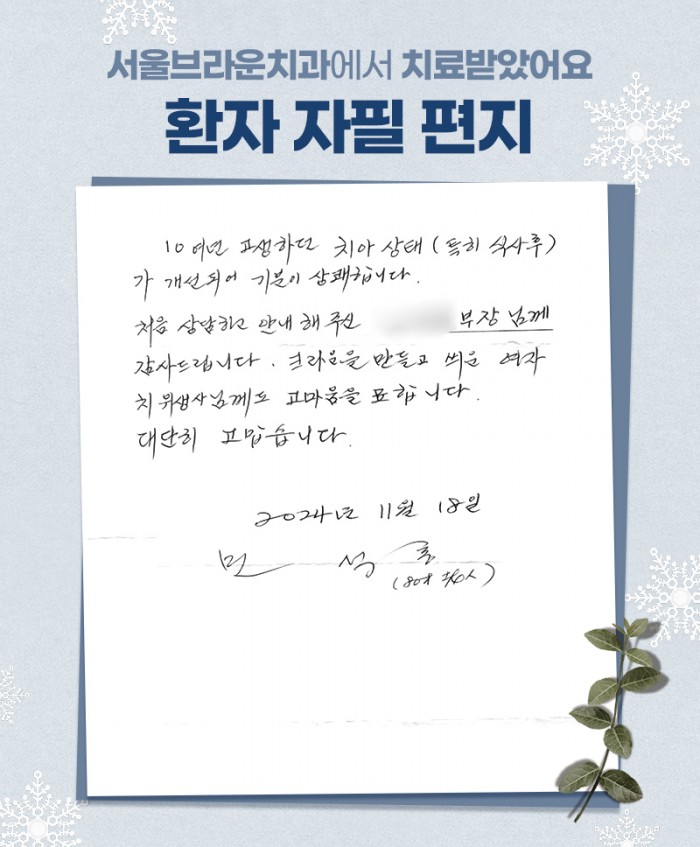 서울브라운치과에서 치료받았어요
환자 자필 편지
10여년 고생하던 치아 상태 (특히 식사후)
가 개선되어 기분이 상쾌합니다.
처음 상담하고 안내 해 주신 부장님께
감사드립니다. 크라운을 만들고 씌운 여자
치위생사님께도 고마움을 표합니다.
대단히 고맙습니다.
2024년 11월 18일
민 석
(80才